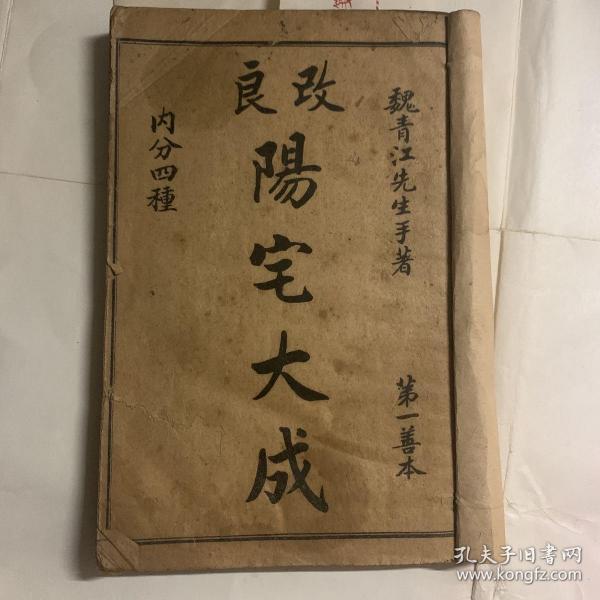 魏青江先生手著
第一善本
改良
陽宅大成
内分四種
孔夫子旧书网
www.kongfz.com